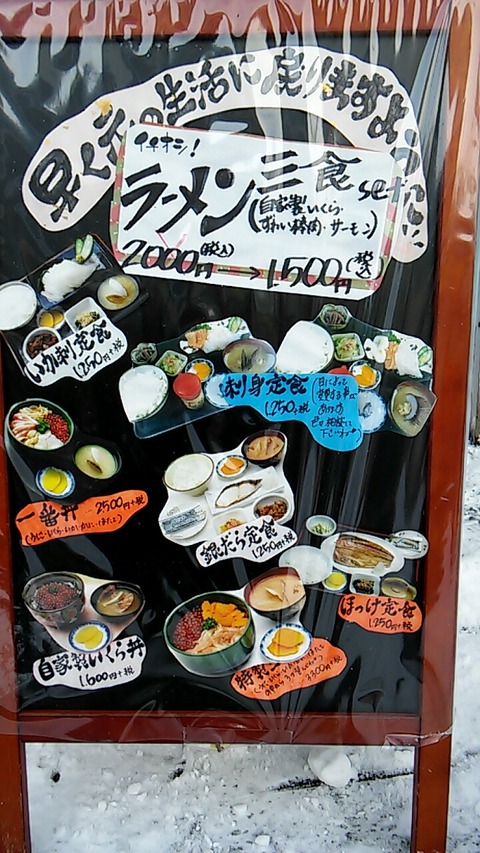 早く元の生活に戻りますように…
イチオシ!
ラーメン三食set
(自家製いくら・
ずわい蟹肉・サーモン)
2000円(税込)→1,500円(税込)
いか刺定食
1,250円+税
刺身定食
1,250+税
日によって
一番丼 2500円+税
銀だら定食
1,250円+税
ほっけ定食
1,250円+税
自家製いくら丼
1,600円+税
特製
3300円+税